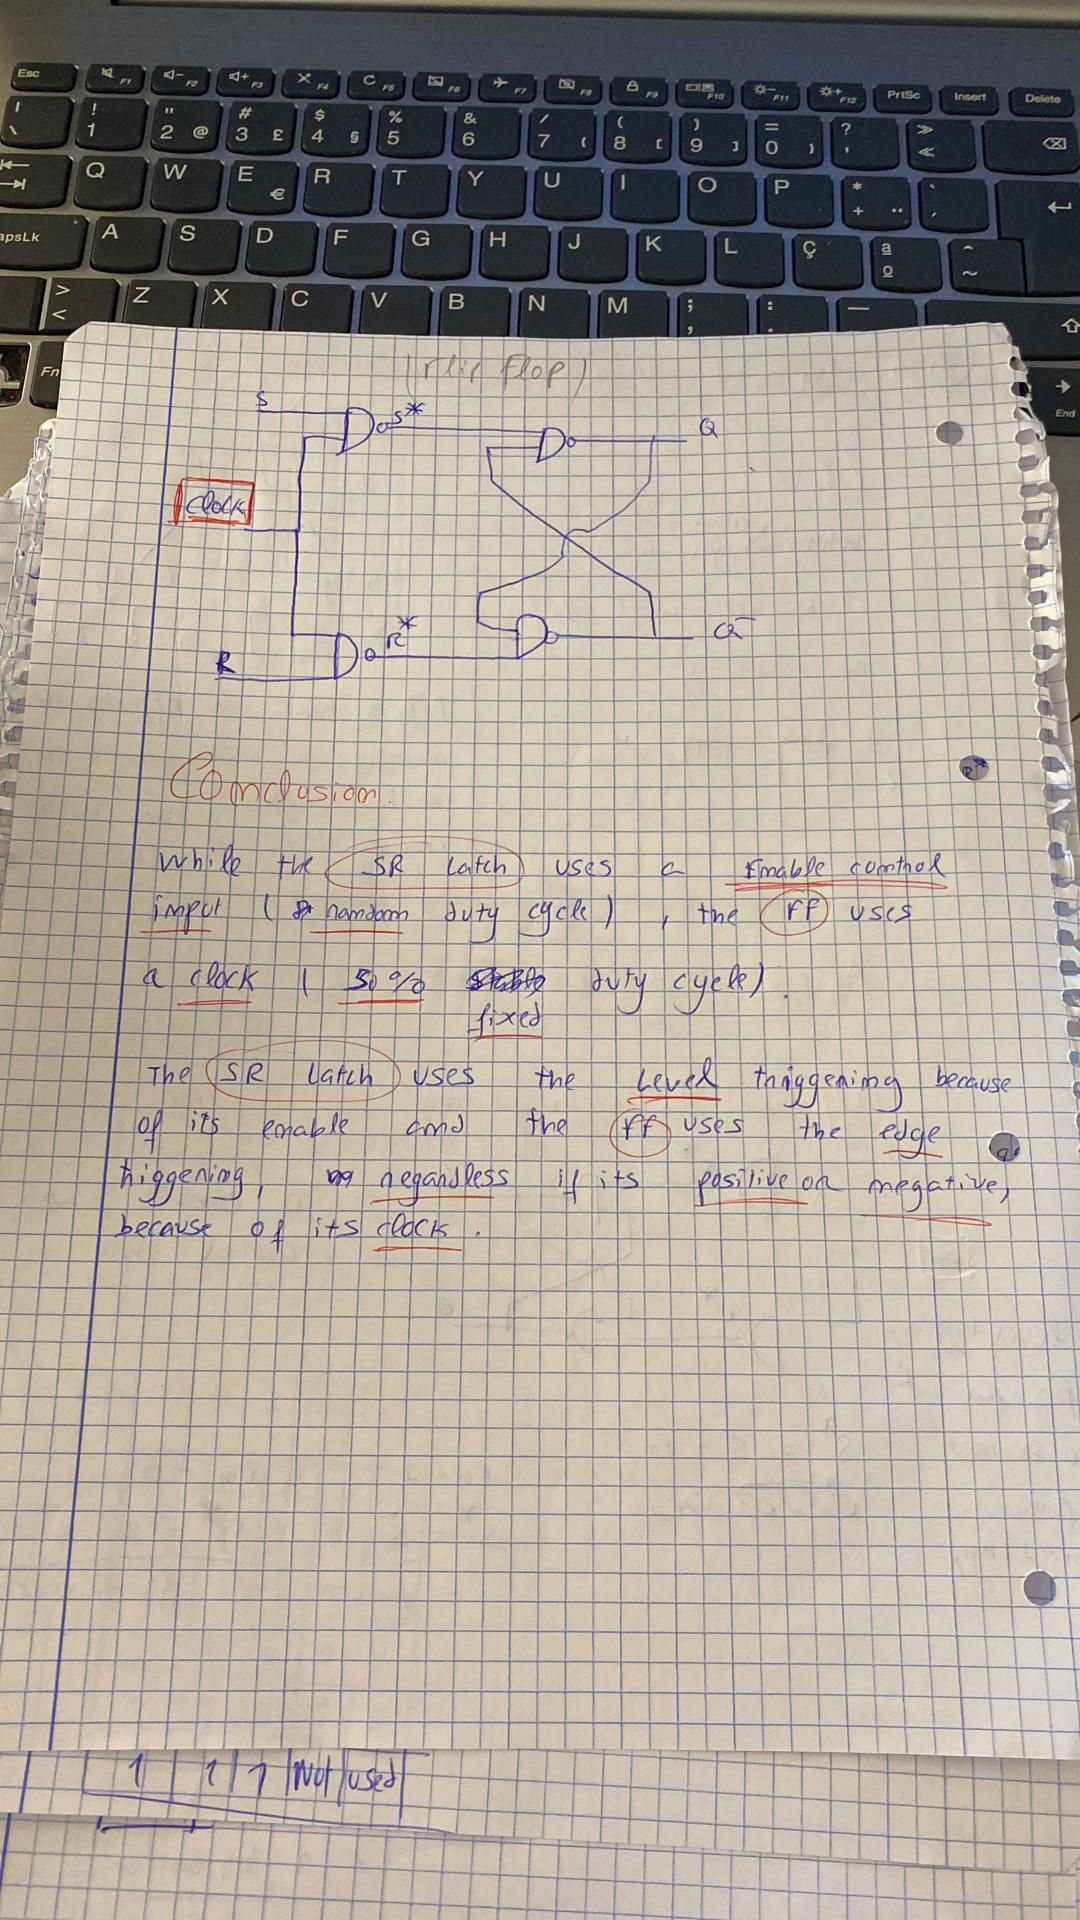 Esc F1 F2 F3 F4 F5 F6 F7 F8 F9 F10 F11 F12 PrtSc Insert Delete
' \ ! 1 " 2 @ # 3 £ $ 4 § % 5 & 6 / 7 { ( 8 [ ) 9 ] = 0 } ? ' » «
Q W E € R T Y U I O P * + ¨ ` ´
apsLk A S D F G H J K L Ç ª º ^ ~
> < Z X C V B N M ; , : . _ -
Fn
End
(Flip flop)
S S* Q
Clock
R R* Q̅
Conclusion.
While the SR Latch uses a Enable control
input ( random duty cycle) , the ff uses
a clock ( 50% duty cycle).
fixed
The SR Latch uses the Level triggering because
of its enable and the ff uses the edge
triggering, regardless if its positive or negative,
because of its clock .
1 1 1 Not used